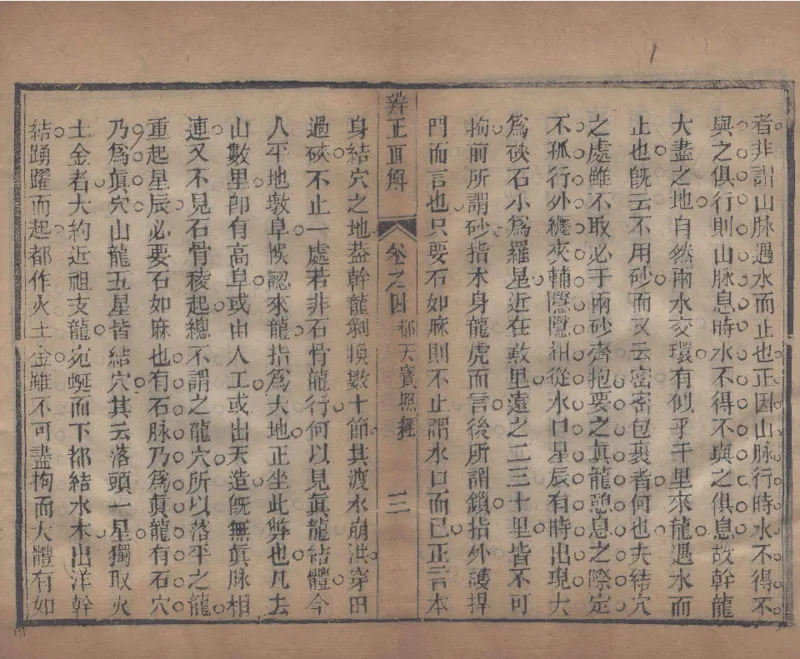 者非謂山脈遇水而止也正因山脈行時水不得不
與之俱行則山脈息時水不得不與之俱息故幹龍
大盡之地自然兩水交環有似乎千里來龍遇水而
止也旣云不用砂而又云密密包裹者何也夫結穴
之處雖不取必于兩砂齊抱要之眞龍憩息之際定
不孤行外纏夾輔隱隱相從水口星辰有時出現大
爲硤石小爲羅星近在數里遠之二三十里皆不可
拘前所謂砂指本身龍虎而言後所謂鎖指外護捍
門而言也只要石如麻則不止謂水口而已正言本
辨正直解
卷之四
都天寶照經
三
身結穴之地葢幹龍剝換數十節其渡水崩洪穿田
過硤不止一處若非石骨龍行何以見眞龍結體今
人平地墩阜悞認來龍指爲大地正坐此弊也凡去
山數里卽有高阜或由人工或出天造旣無眞脉相
連又不見石骨稜起總不謂之龍穴所以落平之龍
重起星辰必要石如麻也有石脉乃爲眞龍有石穴
乃爲眞穴山龍五星皆結穴其云落頭一星獨取火
土金者大約近祖支龍宛蜒而下都結水木出洋幹
結踴躍而起都作火土金雖不可盡拘而大體有如